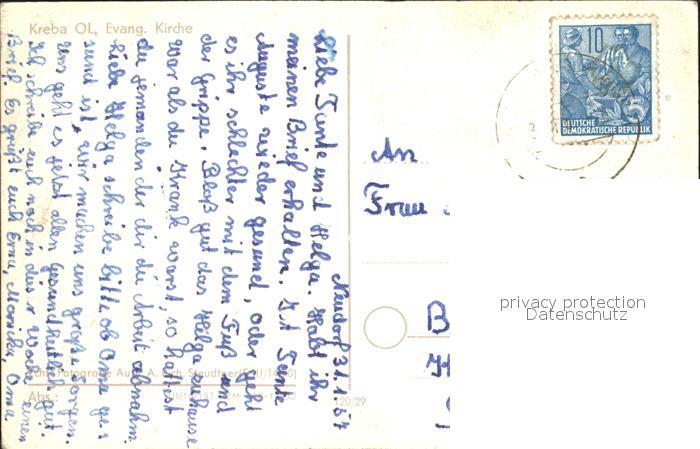 Kreba OL, Evang. Kirche
Neudorf 31.1.57
Liebe Tante und Helga. Habt ihr
meinen Brief erhalten. Ist Tante
Auguste wieder gesund, oder geht
es ihr schlechter mit dem Fuß und
der Grippe. Bloß gut das Helga zuhause
war als du Krank warst, so hattest
du jemanden der dir die Arbeit abnahm.
Liebe Helga schreibe bitte ob Oma ge-
sund ist, wir machen uns große Sorgen.
Uns geht es jetzt allen Gesundheitlich gut.
Ich schreibe euch noch in dieser Woche einen
Brief. Es grüßt euch Erna, Monika, Oma
Abs.:
120/29
10
5
DEUTSCHE
DEMOKRATISCHE REPUBLIK
An
Frau
B
H
privacy protection
Datenschutz